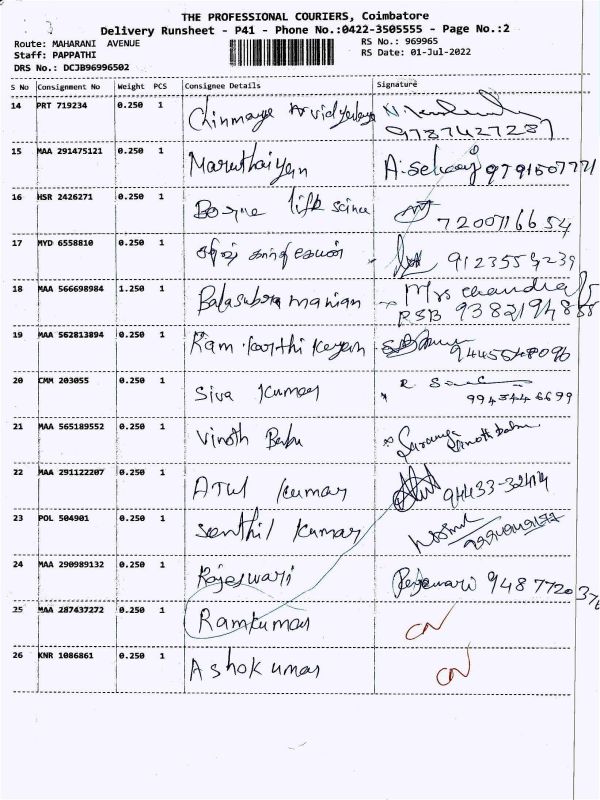 THE PROFESSIONAL COURIERS, Coimbatore
Delivery Runsheet - P41 - Phone No.:0422-3505555 - Page No.:2
Route: MAHARANI AVENUE RS No.: 969965
Staff: PAPPATHI RS Date: 01-Jul-2022
DRS No.: DCJB96996502
S No Consignment No Weight PCS Consignee Details Signature
14 PRT 719234 0.250 1 Chinmaya vidyalaya
9787427287
15 MAA 291475121 0.250 1 Maruthaiyan A. Selvaraj 9791507771
16 HSR 2426271 0.250 1 life science
7200716654
17 MYD 6558810 0.250 1 9123559239
18 MAA 566698984 1.250 1 Balasubramanian Mrs chandra
RSB 9382194855
19 MAA 562813894 0.250 1 Ram karthikeyan
20 CMM 203055 0.250 1 Siva Kumar
9943446699
21 MAA 565189552 0.250 1 Vinoth Babu Saranya Vinoth babu
22 MAA 291122207 0.250 1 ATUL Kumar 94433-32414
23 POL 504901 0.250 1 Senthil Kumar
24 MAA 290989132 0.250 1 Rajeswari Rajeswari 9487720376
25 MAA 287437272 0.250 1 Ramkumar CN
26 KNR 1086861 0.250 1 Ashokumar CN